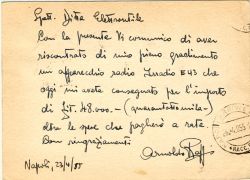 Spett. Ditta Elettrostile
Con la presente Vi comunico di aver
riscontrato di mio pieno gradimento
un apparecchio radio Irradio E43 che
oggi mi avete consegnato per l'importo
di £it. 48.000.- (quarantottomila-
oltre le spese che pagherò a rate.
Con ringraziamenti
Arnoldo
Napoli, 23/4/55